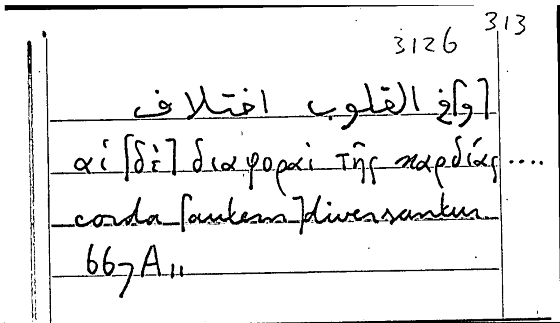 3126 313
[و]في القلوب اختلاف
αἱ [δὲ] διαφοραὶ τῆς καρδίας ....
corda [autem] diversantur
667A11